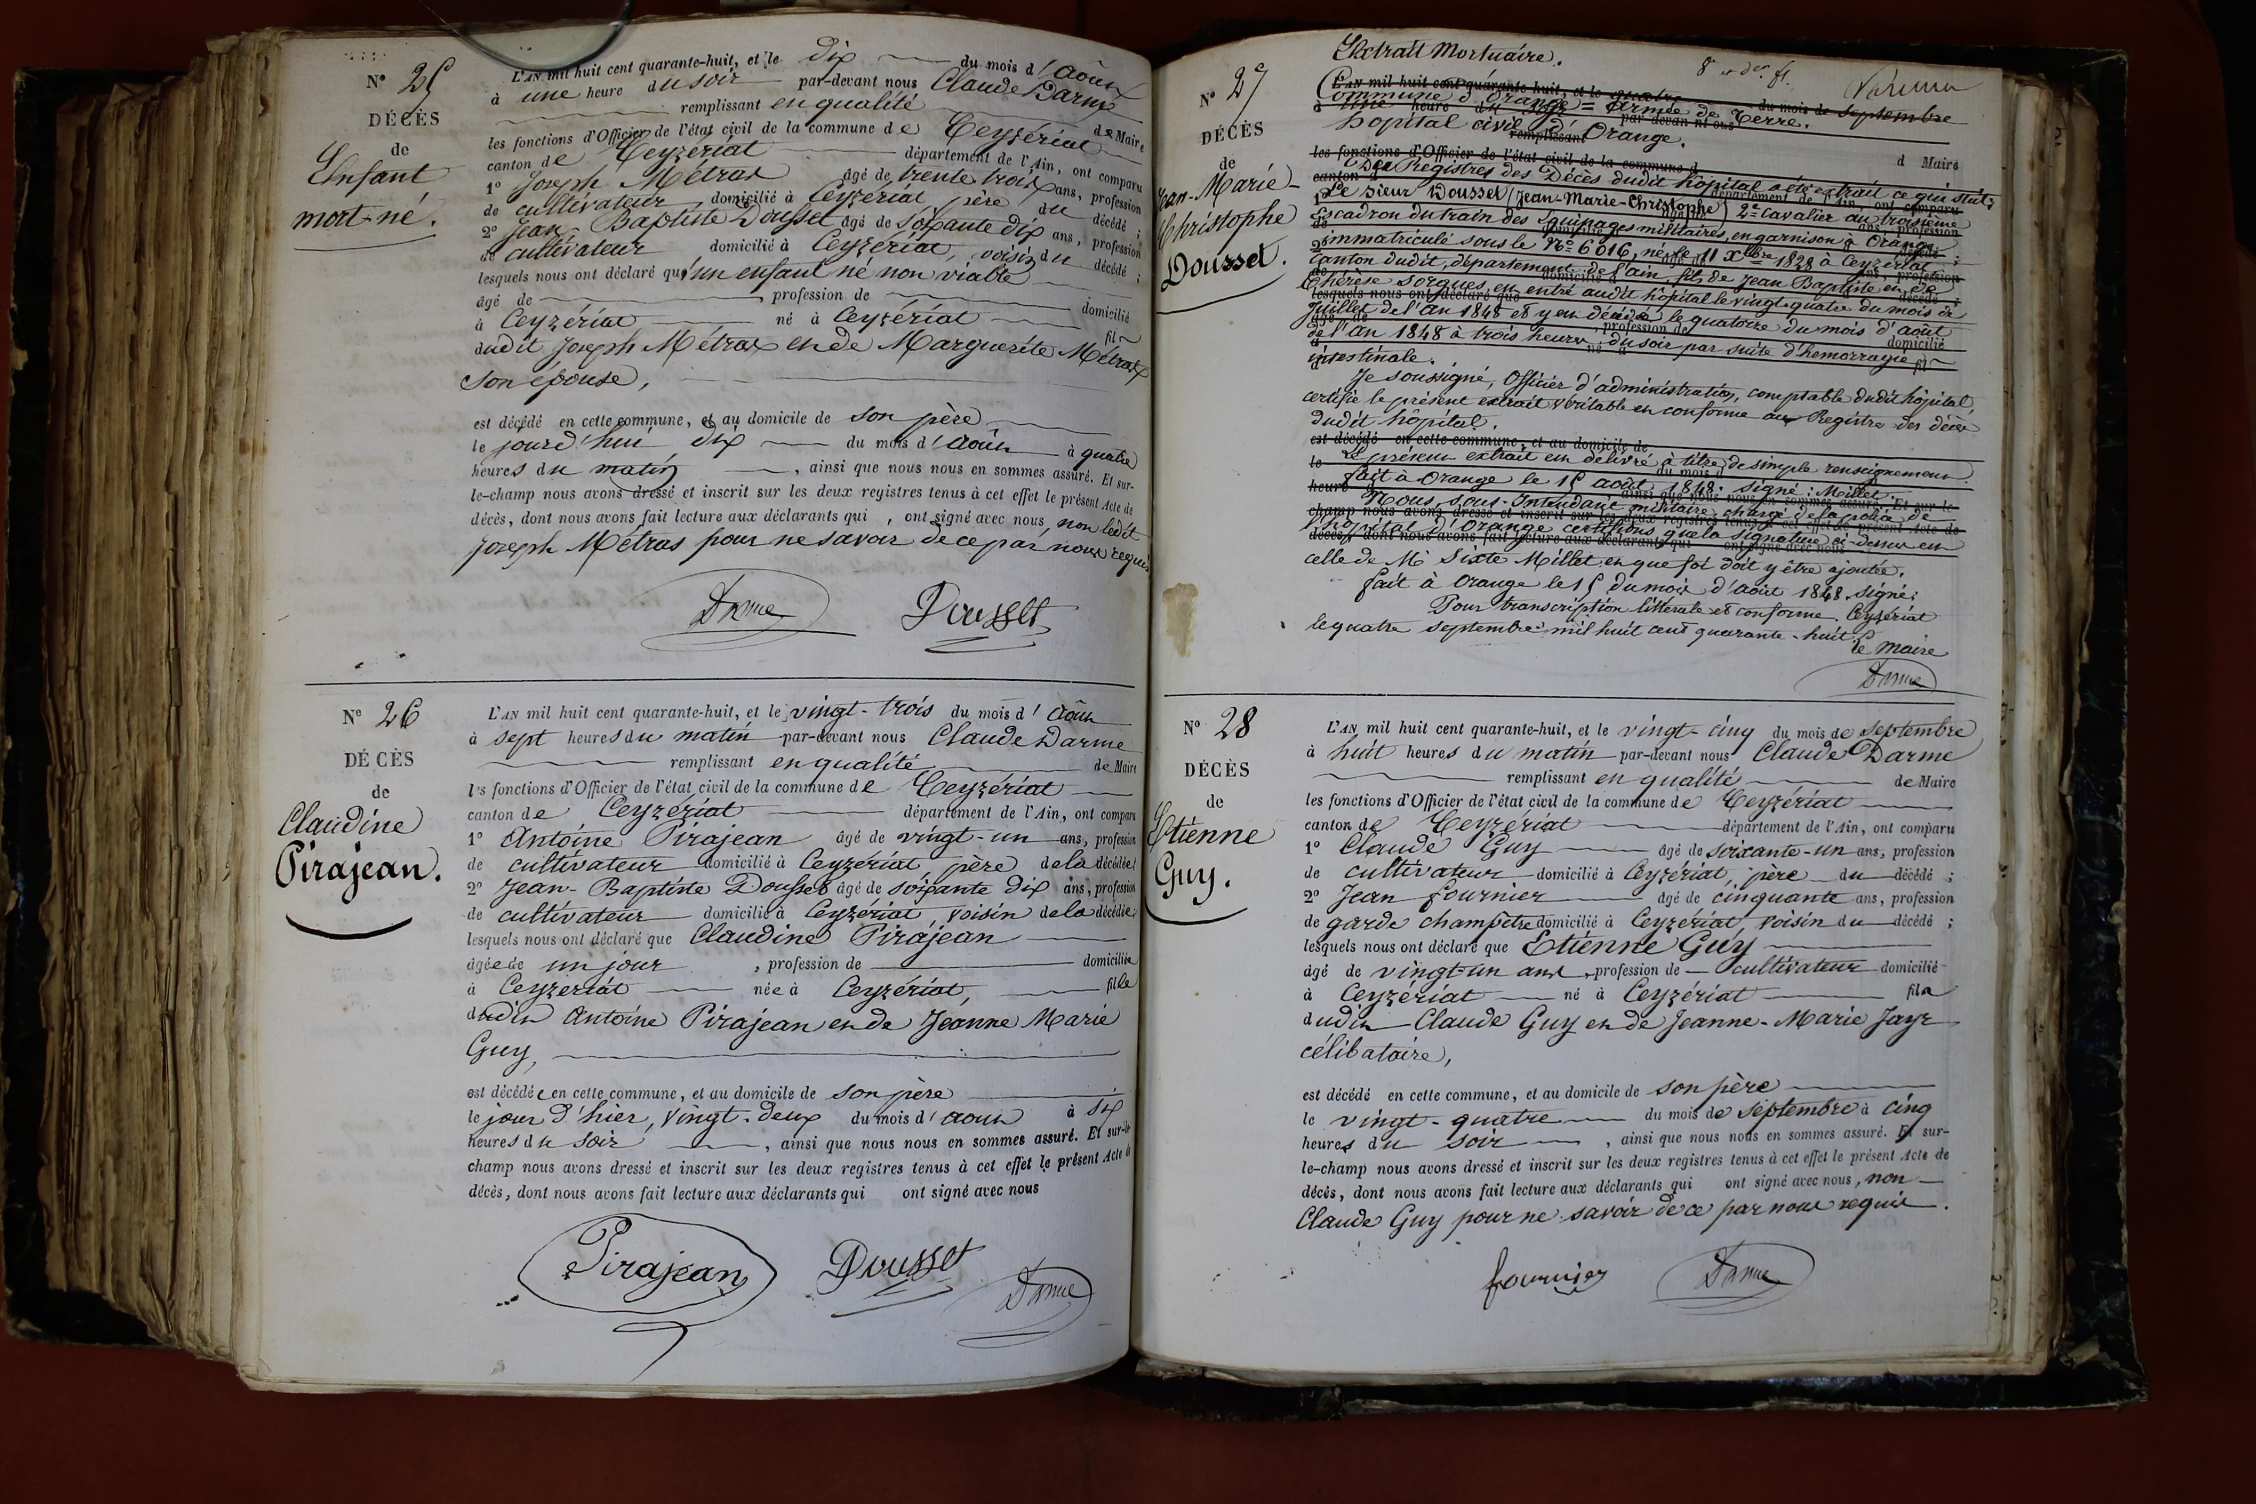 N° 25
DÉCÈS
de
Enfant
mort-né.
L'AN mil huit cent quarante-huit, et le dix du mois d'août
à une heure du soir par-devant nous Claude Darme
remplissant en qualité de Maire
les fonctions d'Officier de l'état civil de la commune de Ceyzériat
canton de Ceyzériat département de l'Ain, ont comparu
1° Joseph Métras âgé de trente trois ans, profession
de cultivateur domicilié à Ceyzériat, père du décédé ;
2° Jean Baptiste Dousset âgé de soixante dix ans, profession
de cultivateur domicilié à Ceyzériat, voisin du décédé ;
lesquels nous ont déclaré qu'un enfant né non viable
âgé de profession de domicilié
à Ceyzériat né à Ceyzériat fils
dudit Joseph Métras et de Marguerite Métras
son épouse,
est décédé en cette commune, et au domicile de son père
le jourd'hui dix du mois d'août à quatre
heures du matin, ainsi que nous nous en sommes assuré. Et sur-
le-champ nous avons dressé et inscrit sur les deux registres tenus à cet effet le présent Acte de
décès, dont nous avons fait lecture aux déclarants qui, ont signé avec nous, non ledit
Joseph Métras pour ne savoir de ce par nous requis
Darme Dousset
N° 26
DÉCÈS
de
Claudine
Pirajean.
L'AN mil huit cent quarante-huit, et le vingt-trois du mois d'août
à sept heures du matin par-devant nous Claude Darme
remplissant en qualité de Maire
les fonctions d'Officier de l'état civil de la commune de Ceyzériat
canton de Ceyzériat département de l'Ain, ont comparu
1° Antoine Pirajean âgé de vingt-un ans, profession
de cultivateur domicilié à Ceyzériat, père de la décédée;
2° Jean-Baptiste Dousset âgé de soixante dix ans, profession
de cultivateur domicilié à Ceyzériat, voisin de la décédée;
lesquels nous ont déclaré que Claudine Pirajean
âgée de un jour, profession de domiciliée
à Ceyzériat née à Ceyzériat, fille
dudit Antoine Pirajean et de Jeanne Marie
Guy,
est décédée en cette commune, et au domicile de son père
le jour d'hier, vingt-deux du mois d'août à six
heures du soir, ainsi que nous nous en sommes assuré. Et sur-le-
champ nous avons dressé et inscrit sur les deux registres tenus à cet effet le présent Acte de
décès, dont nous avons fait lecture aux déclarants qui ont signé avec nous
Pirajean Dousset Darme
N° 27
DÉCÈS
de
Jean-Marie-
Christophe
Dousset.
Extrait Mortuaire.
L'AN mil huit cent quarante-huit, et le quatre du mois de septembre
Commune d'Orange = Armée de Terre.
hopital civil d'Orange.
les fonctions d'Officier de l'état civil de la commune d Maire
Des Registres des Décès dudit hôpital a été extrait ce qui suit:
Le Sieur Dousset (Jean-Marie-Christophe) 2e cavalier au troisième
Escadron du train des Equipages militaires, en garnison à Orange
immatriculé sous le N° 6016, né le 11 Xbre 1828 à Ceyzériat
Canton dudit, département de l'ain, fils de Jean Baptiste et de
Thérèse Sorgues, est entré audit hôpital le vingt-quatre du mois de
Juillet de l'an 1848 et y est décédé le quatorze du mois d'août
de l'an 1848 à trois heures du soir par suite d'hemorragie
intestinale.
Je soussigné, Officier d'administration, comptable dudit hôpital,
certifie le présent extrait véritable et conforme au Registre des décès
dudit hôpital.
est décédé en cette commune, et au domicile de
Le présent extrait est délivré à titre de simple renseignement.
fait à Orange le 15 août 1848. signé: Millet.
Nous, Sous-Intendant militaire, chargé de la police de
l'hôpital d'Orange certifions que la signature ci-dessus est
celle de Mr Sixte Millet, et que foi doit y être ajoutée.
fait à Orange le 15 du mois d'août 1848. signé:
Pour transcription littérale et conforme. Ceyzériat
le quatre septembre mil huit cent quarante-huit.
le Maire
Darme
N° 28
DÉCÈS
de
Etienne
Guy.
L'AN mil huit cent quarante-huit, et le vingt-cinq du mois de septembre
à huit heures du matin par-devant nous Claude Darme
remplissant en qualité de Maire
les fonctions d'Officier de l'état civil de la commune de Ceyzériat
canton de Ceyzériat département de l'Ain, ont comparu
1° Claude Guy âgé de soixante-un ans, profession
de cultivateur domicilié à Ceyzériat, père du décédé ;
2° Jean fournier âgé de cinquante ans, profession
de garde champêtre domicilié à Ceyzériat, voisin du décédé ;
lesquels nous ont déclaré que Etienne Guy
âgé de vingt-un ans, profession de cultivateur domicilié
à Ceyzériat né à Ceyzériat fils
dudit Claude Guy et de Jeanne-Marie Jayr
célibataire,
est décédé en cette commune, et au domicile de son père
le vingt-quatre du mois de septembre à cinq
heures du soir, ainsi que nous nous en sommes assuré. Et sur-
le-champ nous avons dressé et inscrit sur les deux registres tenus à cet effet le présent Acte de
décès, dont nous avons fait lecture aux déclarants qui ont signé avec nous, non
Claude Guy pour ne savoir de ce par nous requis.
fournier Darme